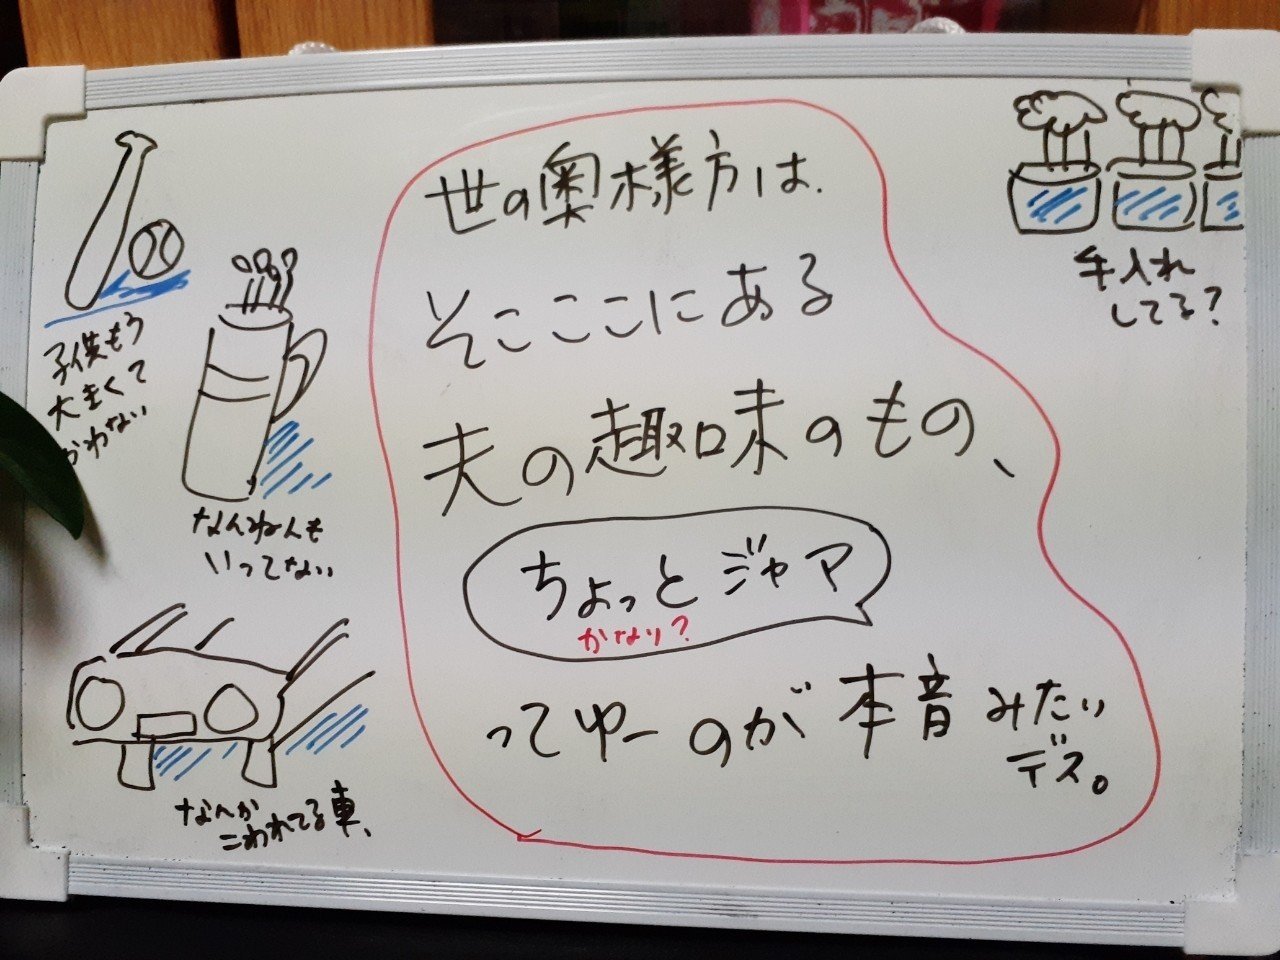 世の奥様方は、
そこここにある
夫の趣味のもの、
ちょっとジャマ
かなり?
ってゆーのが本音みたい
デス。
子供もう
大きくて
かわない
なんねんも
いってない
なんか
こわれてる車、
手入れ
してる?